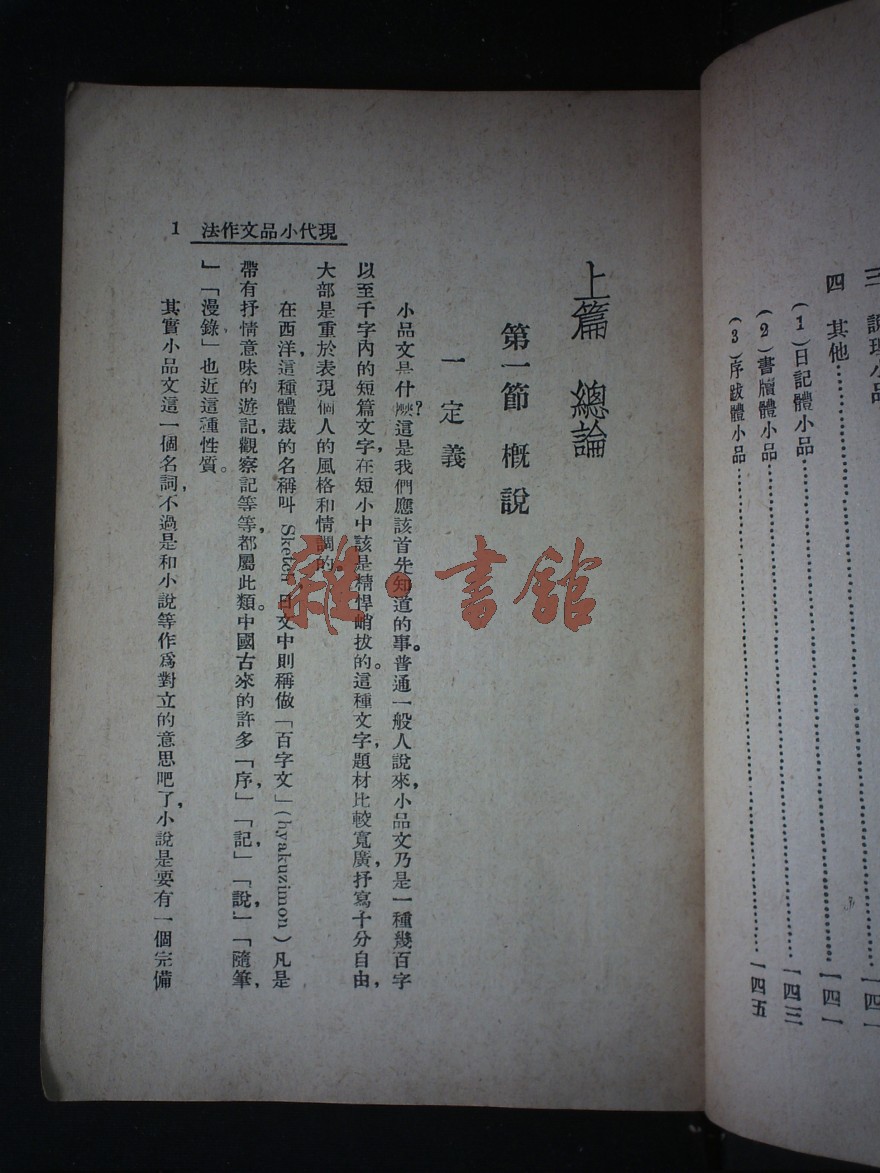 三 說理小品………一四一
四 其他………一四一
(1)日記體小品………一四三
(2)書牘體小品
(3)序跋體小品………一四五
現代小品文作法 1
上篇 總論
第一節 概說
一 定義
小品文是什麽?這是我們應該首先知道的事。普通一般人說來,小品文乃是一種幾百字
以至千字內的短篇文字,在短小中該是精悍峭拔的。這種文字,題材比較寬廣,抒寫十分自由,
大部是重於表現個人的風格和情調的。
在西洋,這種體裁的名稱叫 Sketch,日文中則稱做「百字文」(hyakuzimon)凡是
帶有抒情意味的遊記,觀察記等等,都屬此類。中國古來的許多「序,」「記,」「說,」「隨筆,
」「漫錄」也近這種性質。
其實小品文這一個名詞,不過是和小說等作爲對立的意思吧了,小說是要有一個完備
雜·書館